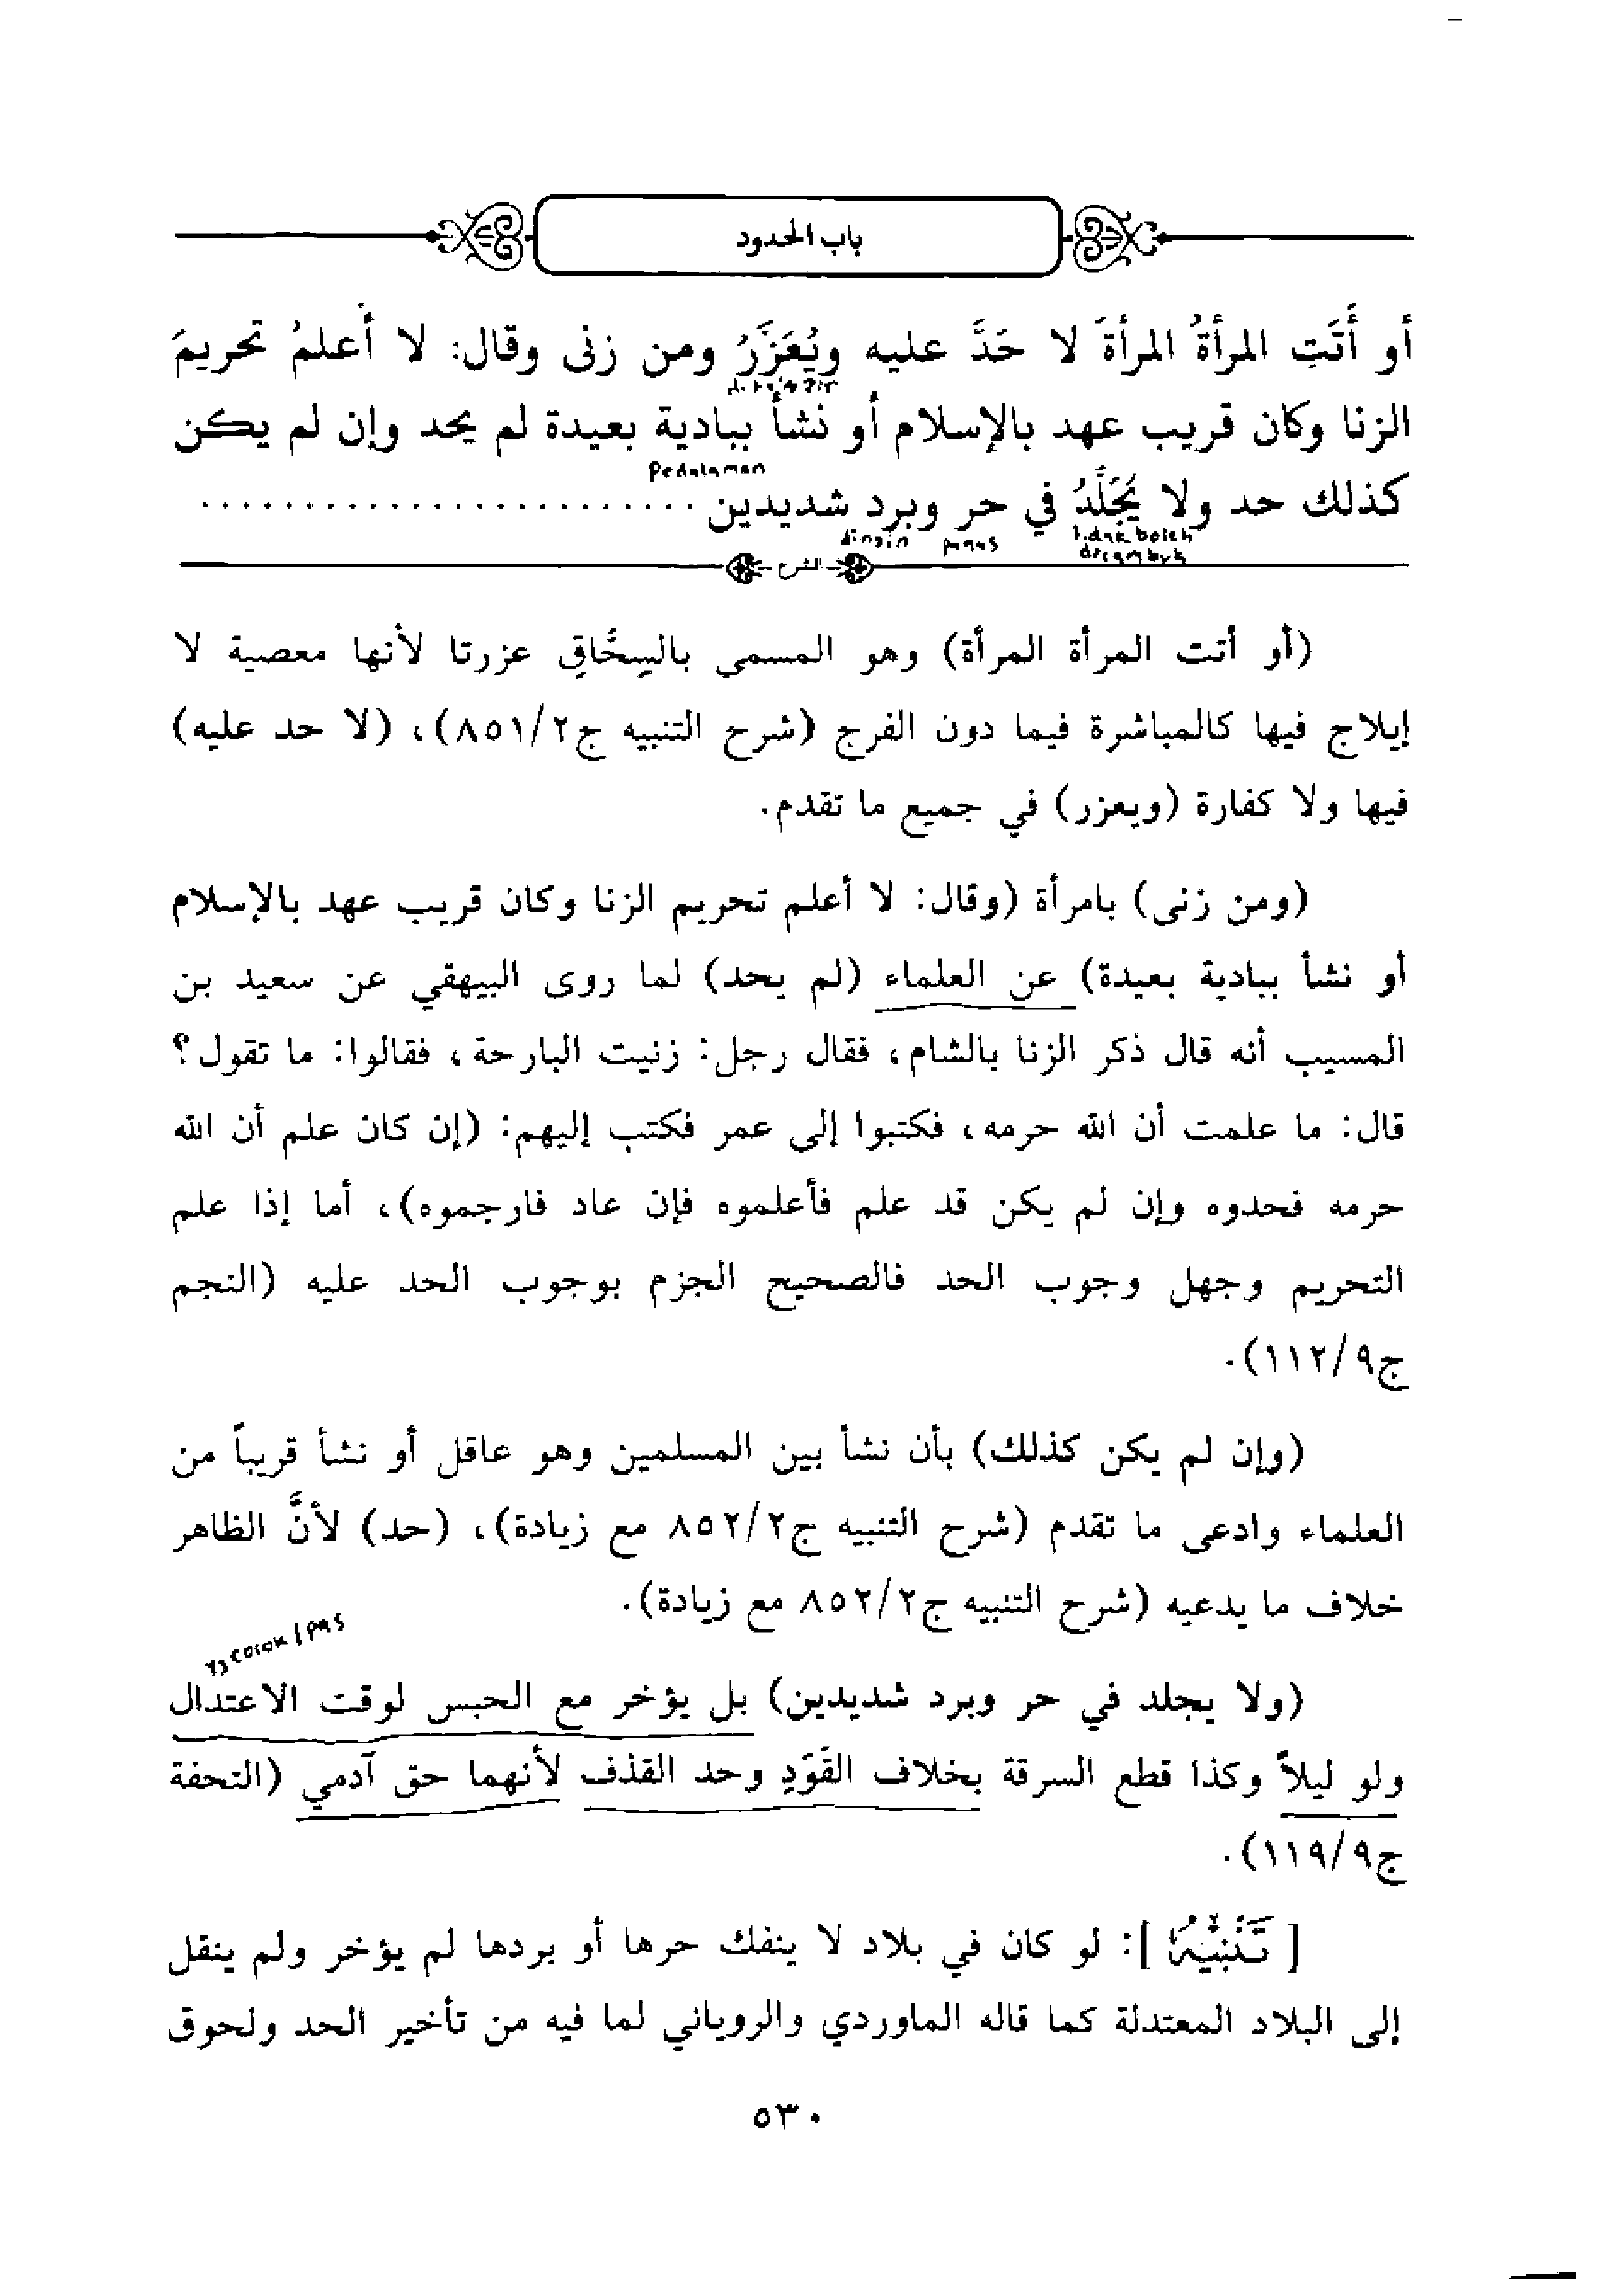 باب الحدود
أو أَتَتِ المرأةُ المرأةَ لا حَدَّ عليه ويُعَزَّرُ ومن زنى وقال: لا أَعلمُ تحريمَ
الزنا وكان قريب عهد بالإسلام أو نشأ ببادية بعيدة لم يحد وإن لم يكن
Pedalaman
كذلك حد ولا يُجَلَّدُ في حر وبرد شديدين ........................
dingin panas tidak boleh
dicambuk
الشرح
(أو أتت المرأة المرأة) وهو المسمى بالسِحَّاقِ عزرتا لأنها معصية لا
إيلاج فيها كالمباشرة فيما دون الفرج (شرح التنبيه ج٢/‏٨٥١)، (لا حد عليه)
فيها ولا كفارة (ويعزر) في جميع ما تقدم.
(ومن زنى) بامرأة (وقال: لا أعلم تحريم الزنا وكان قريب عهد بالإسلام
أو نشأ ببادية بعيدة) عن العلماء (لم يحد) لما روى البيهقي عن سعيد بن
المسيب أنه قال ذكر الزنا بالشام، فقال رجل: زنيت البارحة، فقالوا: ما تقول؟
قال: ما علمت أن الله حرمه، فكتبوا إلى عمر فكتب إليهم: (إن كان علم أن الله
حرمه فحدوه وإن لم يكن قد علم فأعلموه فإن عاد فارجموه)، أما إذا علم
التحريم وجهل وجوب الحد فالصحيح الجزم بوجوب الحد عليه (النجم
ج٩/‏١١٢).
(وإن لم يكن كذلك) بأن نشأ بين المسلمين وهو عاقل أو نشأ قريباً من
العلماء وادعى ما تقدم (شرح التنبيه ج٢/‏٨٥٢ مع زيادة)، (حد) لأنَّ الظاهر
خلاف ما يدعيه (شرح التنبيه ج٢/‏٨٥٢ مع زيادة).
yg cocok / pas
(ولا يجلد في حر وبرد شديدين) بل يؤخر مع الحبس لوقت الاعتدال
ولو ليلاً وكذا قطع السرقة بخلاف القَوَدِ وحد القذف لأنهما حق آدمي (التحفة
ج٩/‏١١٩).
[تَنْبِيْهٌ]: لو كان في بلاد لا ينفك حرها أو بردها لم يؤخر ولم ينقل
إلى البلاد المعتدلة كما قاله الماوردي والروياني لما فيه من تأخير الحد ولحوق
٥٣٠